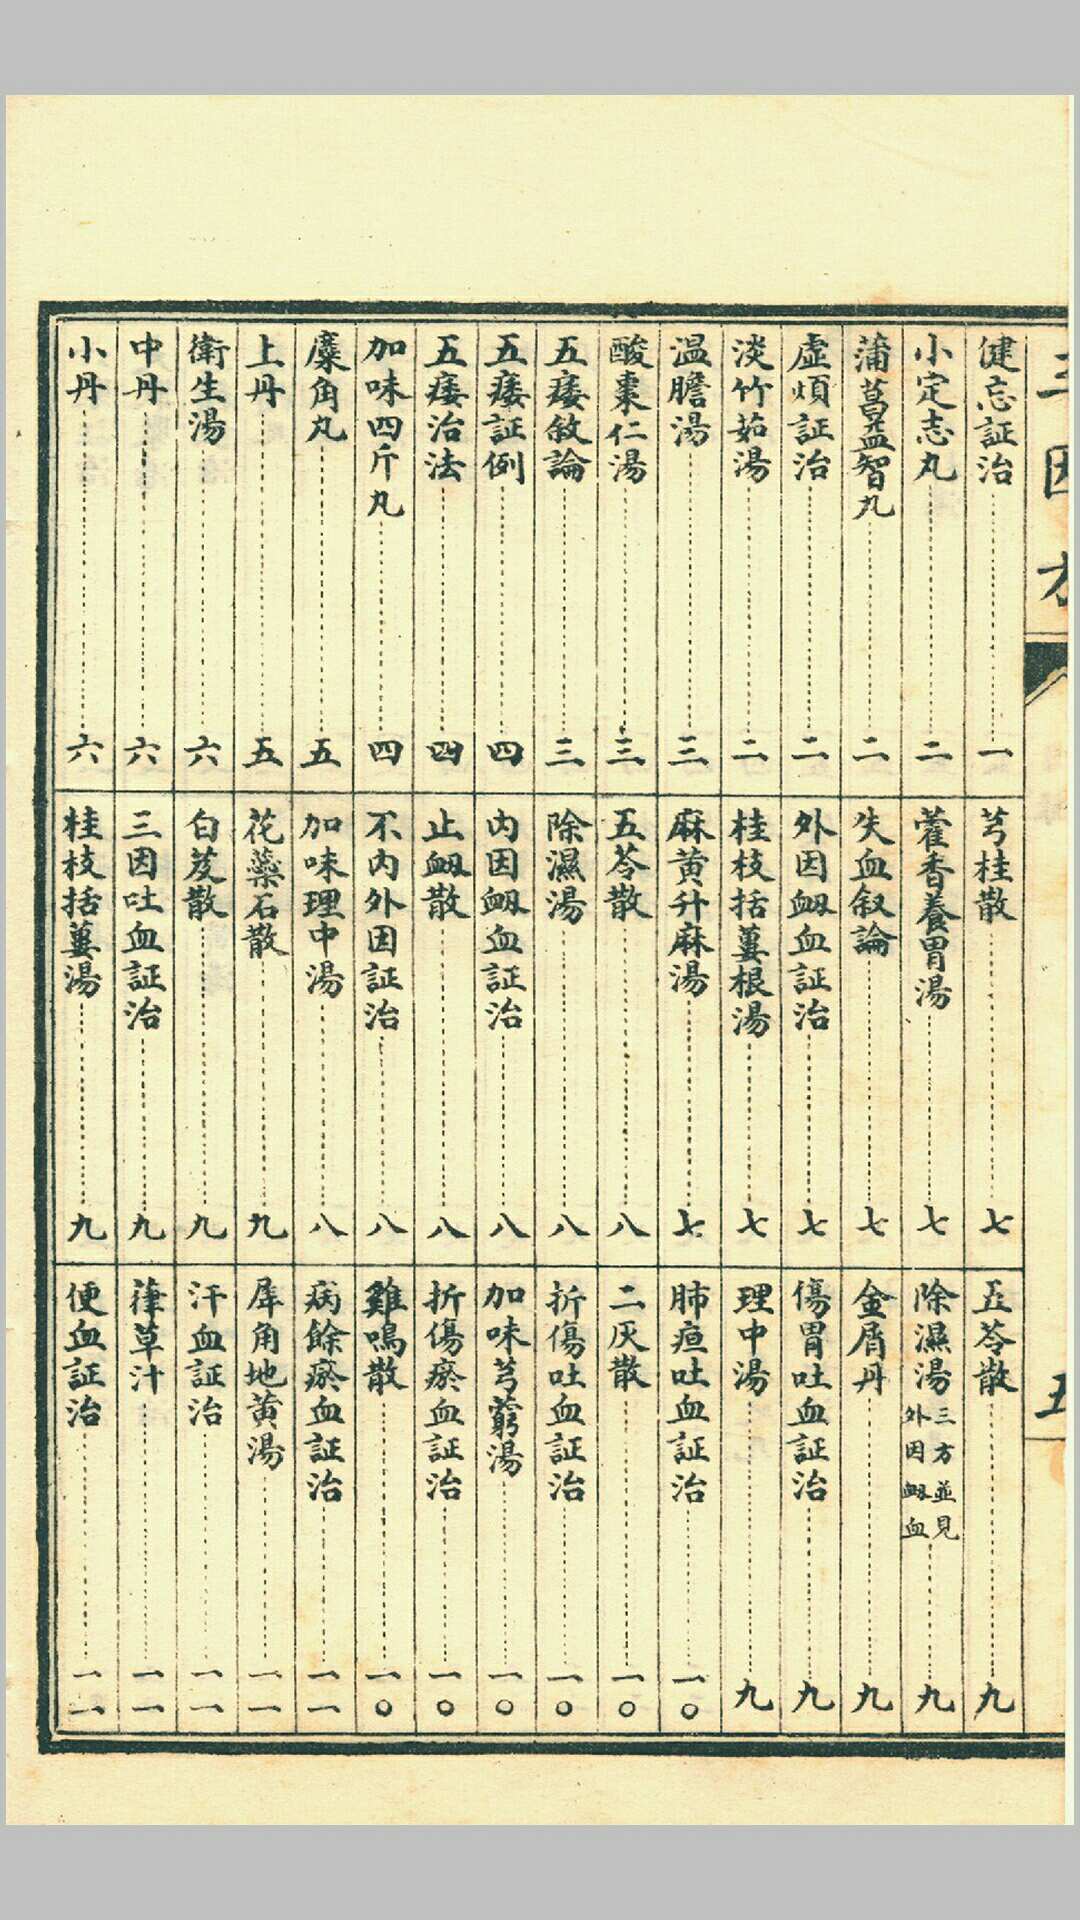 三因方
五
健忘証治 一
小定志丸 二
菖蒲益智丸 二
虛煩証治 二
淡竹茹湯 二
温膽湯 三
酸棗仁湯 三
五痿敘論 三
五痿証例 四
五痿治法 四
加味四斤丸 四
麋角丸 五
上丹 五
衛生湯 六
中丹 六
小丹 六
芎桂散 七
藿香養胃湯 七
失血叙論 七
外因衂血証治 七
桂枝括蔞根湯 七
麻黄升麻湯 七
五苓散 八
除濕湯 八
內因衂血証治 八
止衂散 八
不內外因証治 八
加味理中湯 八
花蘂石散 九
白芨散 九
三因吐血証治 九
桂枝括蔞湯 九
五苓散 九
除濕湯 三方並見外因衂血 九
金屑丹 九
傷胃吐血証治 九
理中湯 九
肺疸吐血証治 一〇
二灰散 一〇
折傷吐血証治 一〇
加味芎藭湯 一〇
折傷瘀血証治 一〇
雞鳴散 一〇
病餘瘀血証治 一一
犀角地黄湯 一一
汗血証治 一一
葎草汁 一一
便血証治 一一